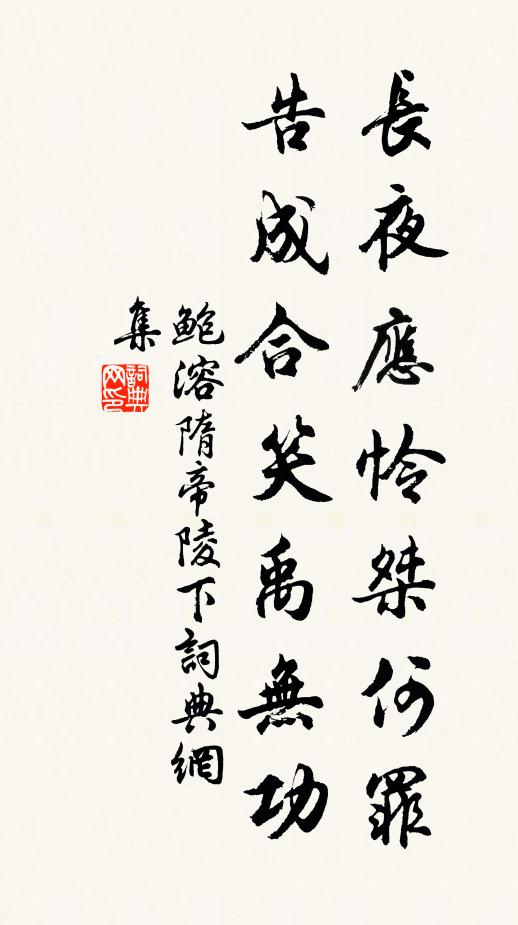 長夜應怜桀何罪
告成合笑禹無功
鲍溶隋帝陵下詞典網
集
詞典
网印